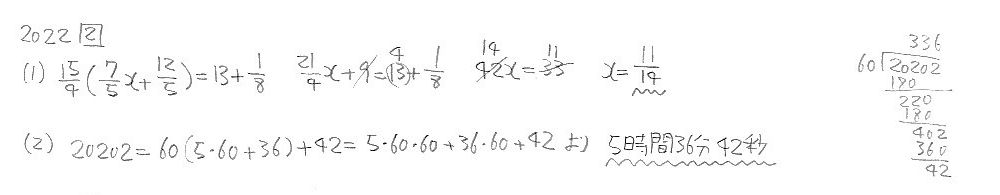 2022 2
(1) 15/4(7/5x+12/5)=13+1/8 21/4x+9=13+1/8 4 42x=33 14 11 x=11/14
(2) 20202=60(5・60+36)+42=5・60・60+36・60+42より 5時間36分42秒
336
60)20202
180
220
180
402
360
42